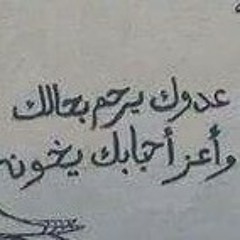 عدوك يرحم بحالك
وأعز أحبابك يخونك